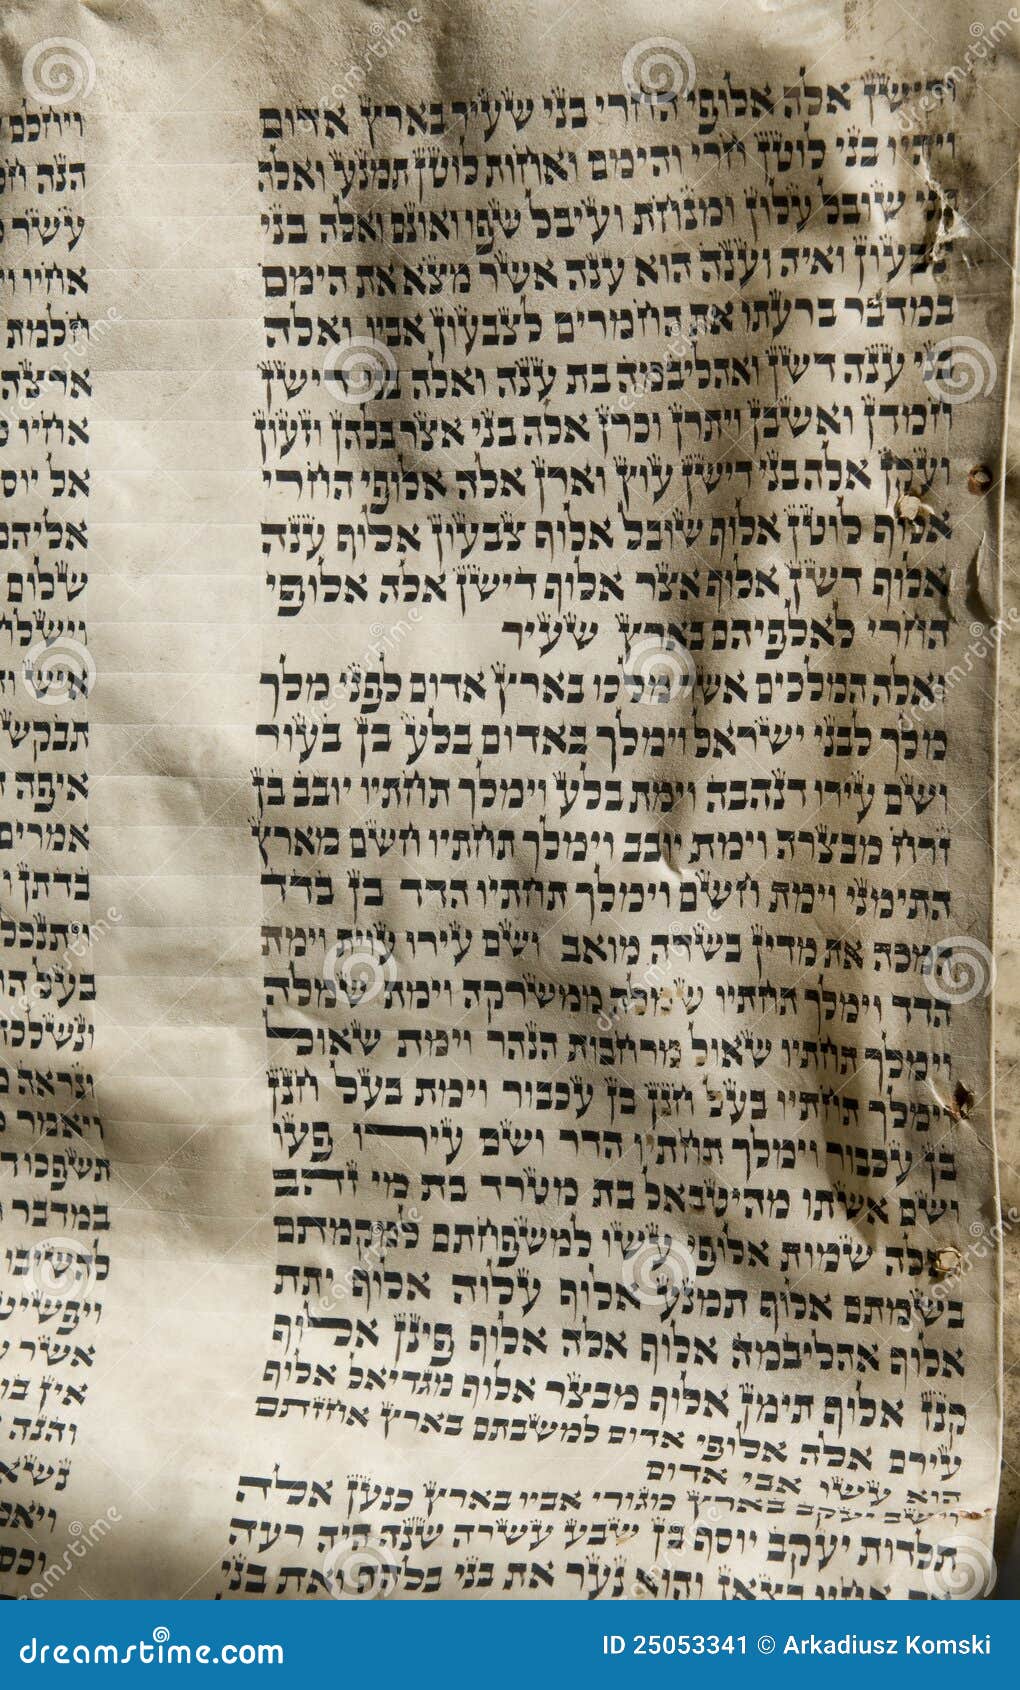 ודישן אלה אלופי החרי בני שעיר בארץ אדום
ויהיו בני לוטן חרי והימם ואחות לוטן תמנע ואלה
בני שובל עלון ומנחת ועיבל שפו ואונם ואלה בני
צבעון ואיה וענה הוא ענה אשר מצא את הימם
במדבר ברעתו את החמרים לצבעון אביו ואלה
בני ענה דשן ואהליבמה בת ענה ואלה בני דישן
חמדן ואשבן ויתרן וכרן אלה בני אצר בלהן וזעון
ועקן אלה בני דישן עוץ וארן אלה אלופי החרי
אלוף לוטן אלוף שובל אלוף צבעון אלוף ענה
אלוף דשן אלוף אצר אלוף דישן אלה אלופי
החרי לאלפיהם בארץ שעיר
ואלה המלכים אשר מלכו בארץ אדום לפני מלך
מלך לבני ישראל וימלך באדום בלע בן בעור
ושם עירו דנהבה וימת בלע וימלך תחתיו יובב בן
זרח מבצרה וימת יובב וימלך תחתיו חשם מארץ
התימני וימת חשם וימלך תחתיו הדד בן בדד
המכה את מדין בשדה מואב ושם עירו עוית וימת
הדד וימלך תחתיו שמלה ממשרקה וימת שמלה
וימלך תחתיו שאול מרחבות הנהר וימת שאול
וימלך תחתיו בעל חנן בן עכבור וימת בעל חנן
בן עכבור וימלך תחתיו הדר ושם עירו פעו
ושם אשתו מהיטבאל בת מטרד בת מי זהב
ואלה שמות אלופי עשו למשפחתם למקמתם
בשמתם אלוף תמנע אלוף עלוה אלוף יתת
אלוף אהליבמה אלוף אלה אלוף פינן אלוף
קנז אלוף תימן אלוף מבצר אלוף מגדיאל אלוף
עירם אלה אלופי אדום למשבתם בארץ אחזתם
הוא עשו אבי אדום
וישב יעקב בארץ מגורי אביו בארץ כנען אלה
תלדות יעקב יוסף בן שבע עשרה שנה היה רעה
את אחיו בצאן והוא נער את בני בלהה ואת בני
הנה
עשר
אחיו
חלמת
ארצה
אחיו
אל יוסף
אליהם
שלום
וישלח
איש
תבקש
איפה
אמרים
בדתן
ויתנכלו
בעל
ונשלכהו
ונראה
ויאמר
תשפכו
במדבר
להשיבו
ויפשיטו
אשר
אין
והנה
נשא
dreamstime.com
ID 25053341 © Arkadiusz Komski